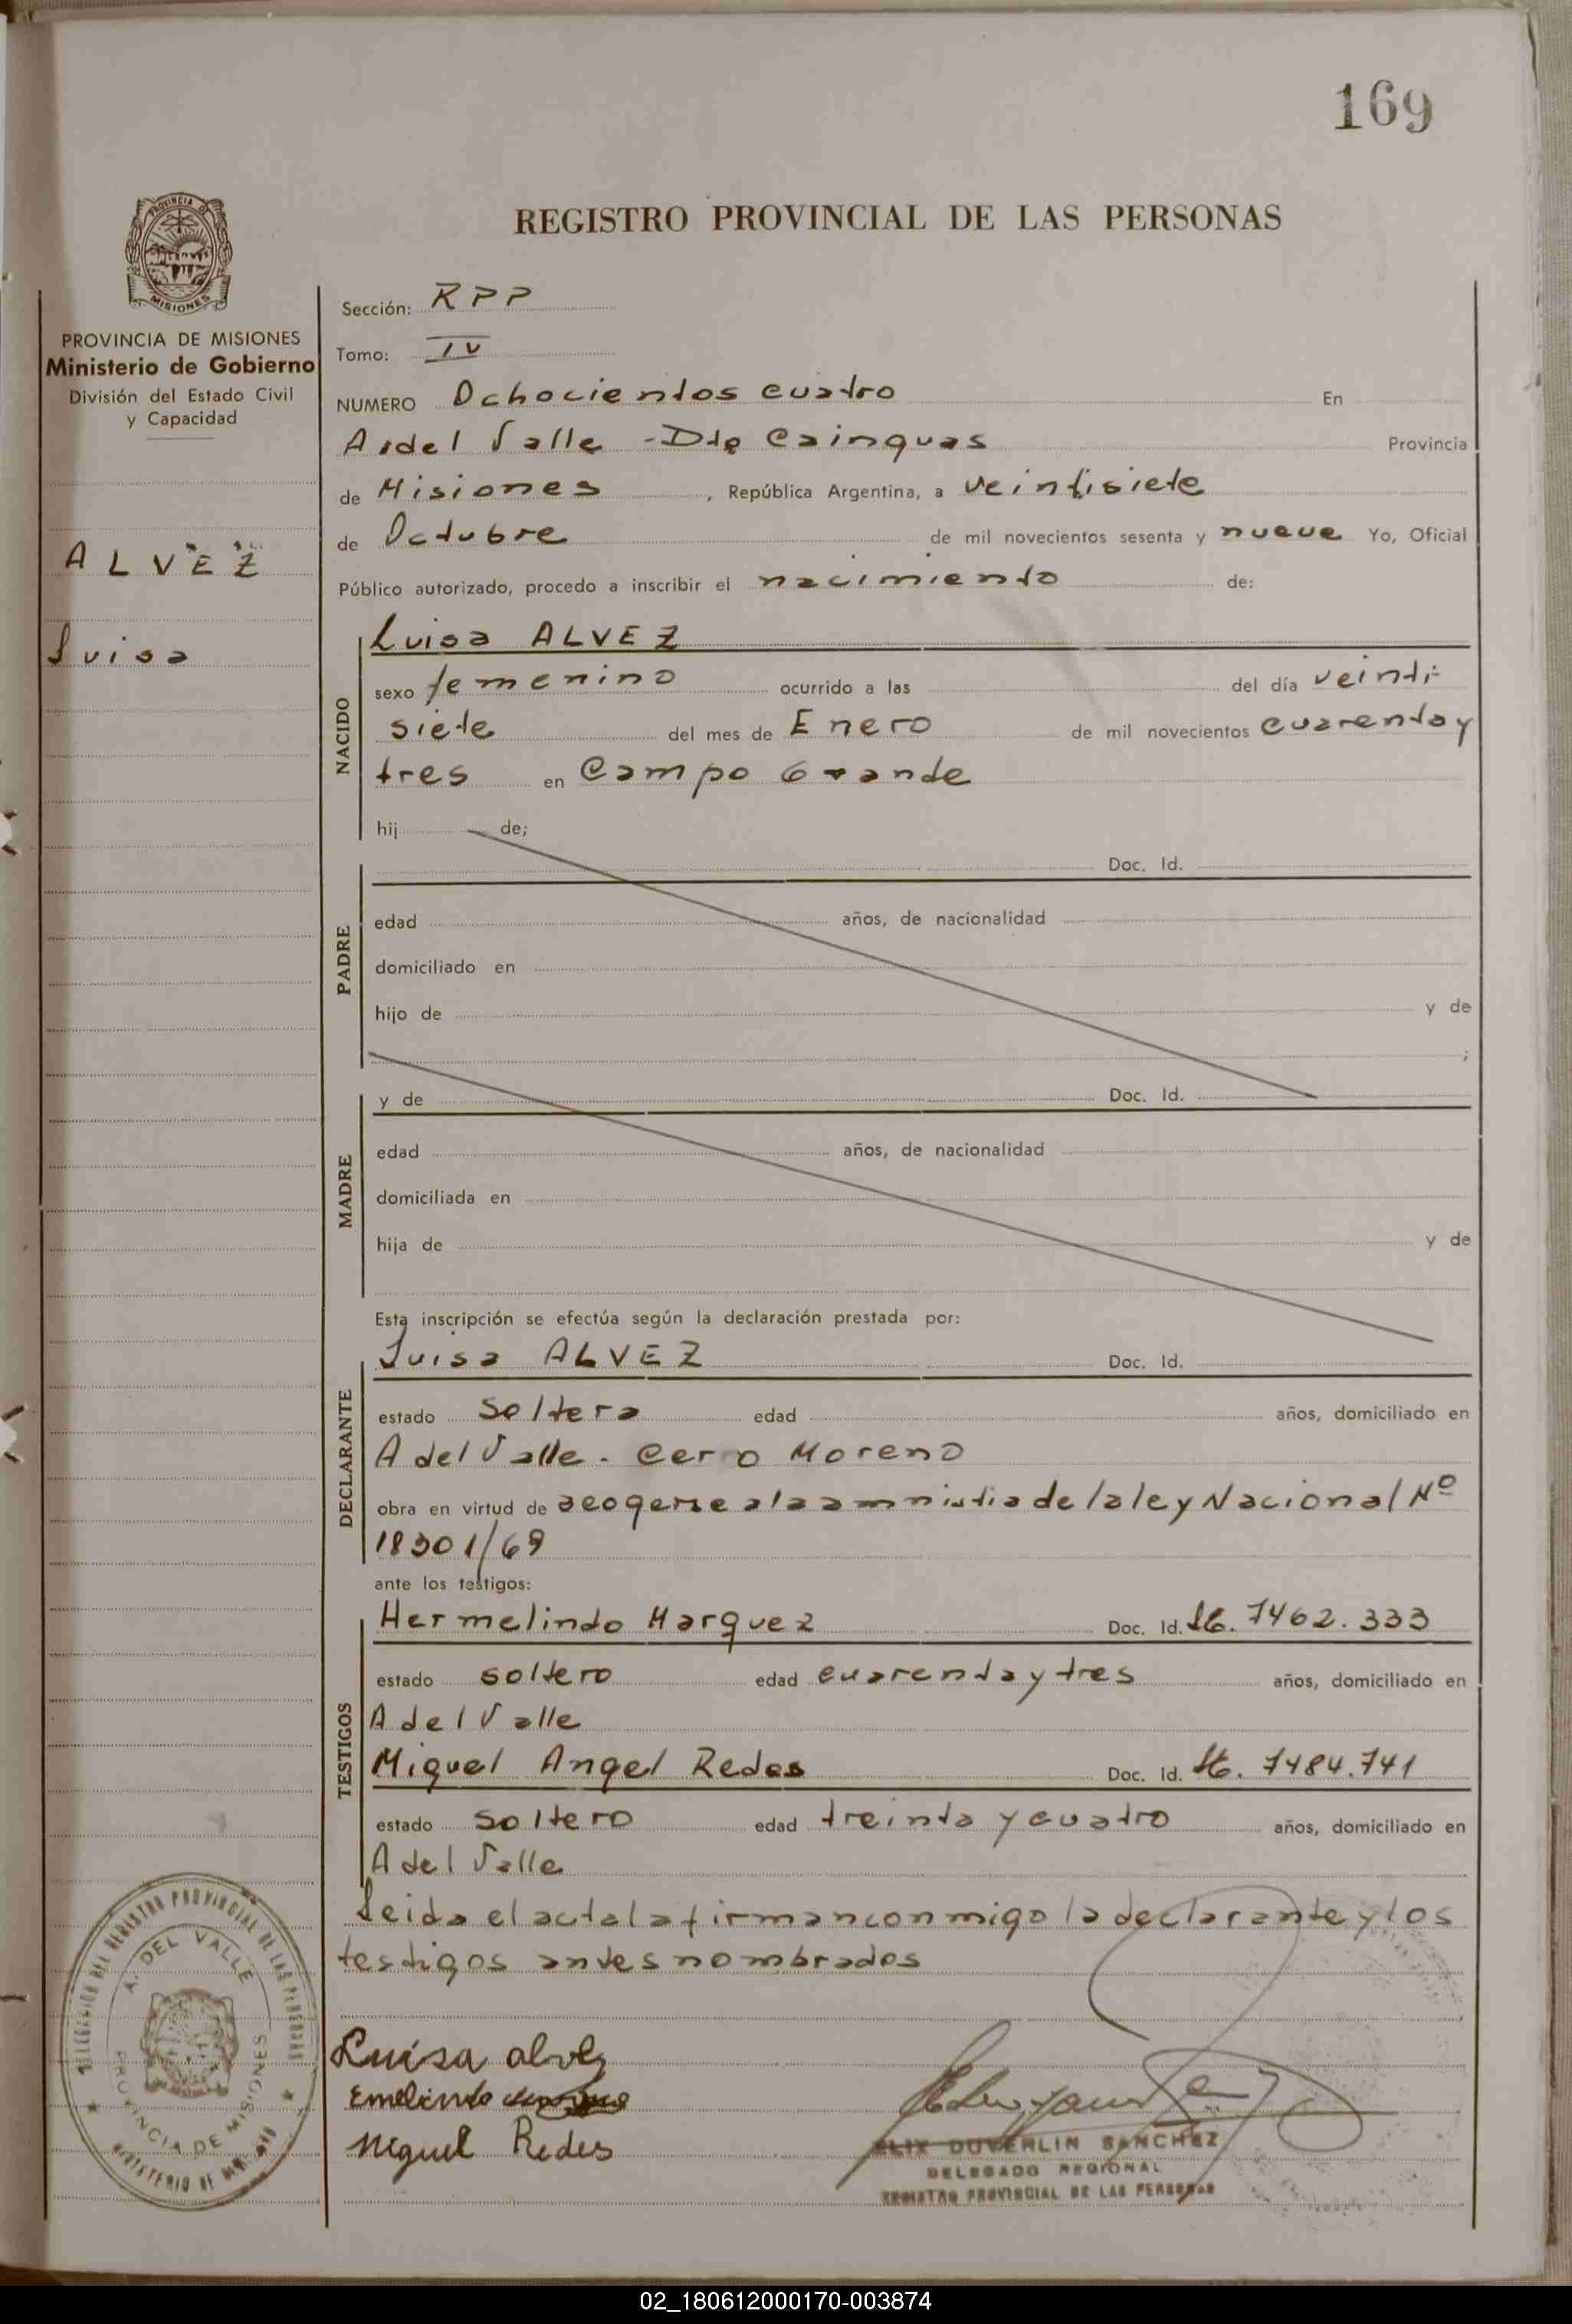 169
REGISTRO PROVINCIAL DE LAS PERSONAS
PROVINCIA DE MISIONES
Ministerio de Gobierno
División del Estado Civil
y Capacidad
ALVEZ
Luisa
Sección: RPP
Tomo: IV
NUMERO Ochocientos cuatro En
A del Valle - Dto Cainguas Provincia
de Misiones, República Argentina, a veintisiete
de Octubre de mil novecientos sesenta y nueve Yo, Oficial
Público autorizado, procedo a inscribir el nacimiento de:
NACIDO
Luisa ALVEZ
sexo femenino ocurrido a las del día veinti-
siete del mes de Enero de mil novecientos cuarenta y
tres en Campo Grande
hij de;
PADRE
Doc. Id.
edad años, de nacionalidad
domiciliado en
hijo de y de
;
MADRE
y de Doc. Id.
edad años, de nacionalidad
domiciliada en
hija de y de
Esta inscripción se efectúa según la declaración prestada por:
DECLARANTE
Luisa ALVEZ Doc. Id.
estado Soltera edad años, domiciliado en
A del Valle. Cerro Moreno
obra en virtud de acogerse a la amnistia de la ley Nacional Nº
18301/69
ante los testigos:
TESTIGOS
Hermelindo Marquez Doc. Id. 7462.333
estado soltero edad cuarenta y tres años, domiciliado en
A del Valle
Miguel Angel Redes Doc. Id. 7484.741
estado soltero edad treinta y cuatro años, domiciliado en
A del Valle
Leida el acta la firman conmigo la declarante y los
testigos antes nombrados
Luisa alvez
Emelindo
Miguel Redes
DUVERLIN SANCHEZ
DELEGADO REGIONAL
REGISTRO PROVINCIAL DE LAS PERSONAS
DELEGACION DEL REGISTRO PROVINCIAL DE LAS PERSONAS
A. DEL VALLE
PROVINCIA DE MISIONES
02_180612000170-003874